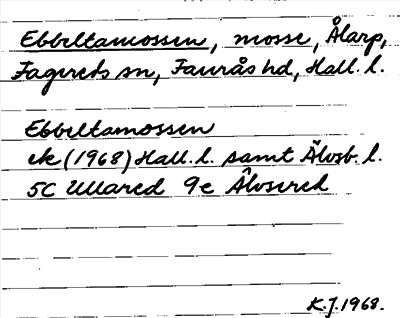 Ebbeltamossen, mosse, Ålarp,
Fagereds sn, Faurås hd, Hall. l.
Ebbeltamossen
ek (1968) Hall. l. samt Älvsb. l.
5C Ullared 9e Älvsered
K.J. 1968.